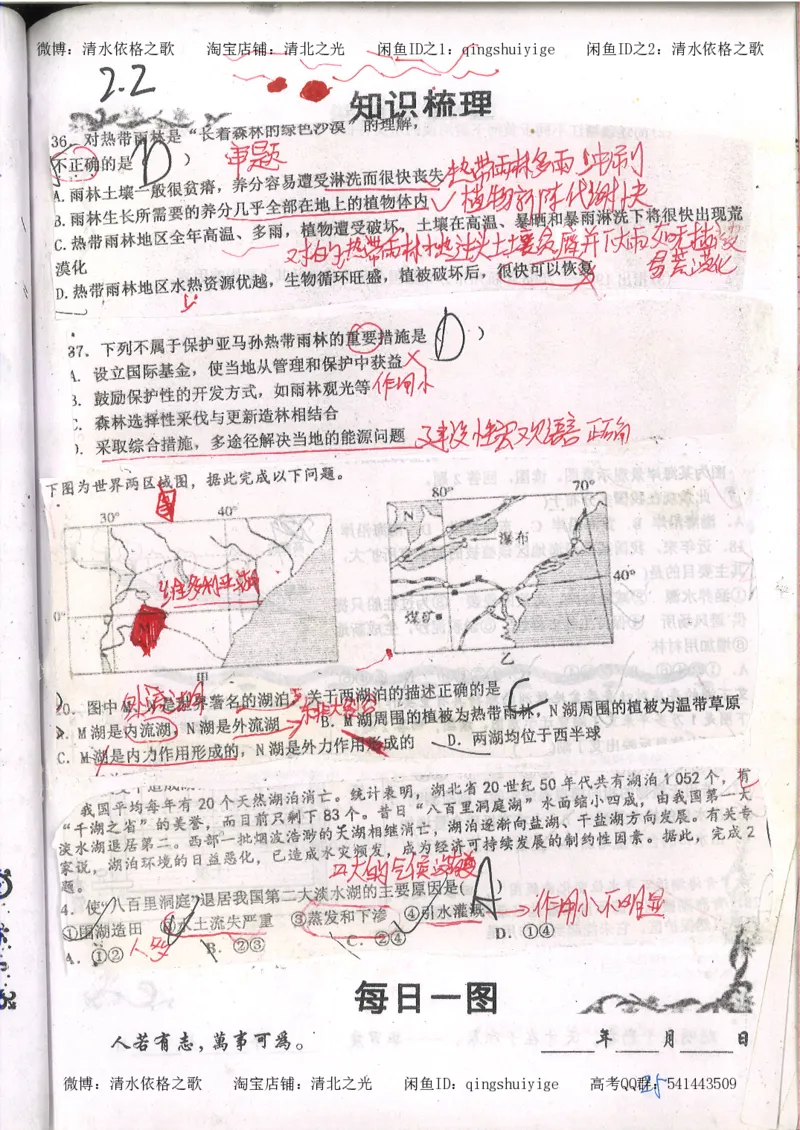 微博：清水依格之歌 淘宝店铺：清北之光 闲鱼ID之1：qingshuiyige 闲鱼ID之2：清水依格之歌
2.2
知识梳理
36．对热带雨林是“长着森林的绿色沙漠”的理解，
不正确的是（ D ）
审题
A.雨林土壤一般很贫瘠，养分容易遭受淋洗而很快丧失
热带雨林多雨冲刷
B.雨林生长所需要的养分几乎全部在地上的植物体内
植物新陈代谢快
C.热带雨林地区全年高温、多雨，植物遭受破坏，土壤在高温、暴晒和暴雨淋洗下将很快出现荒
漠化
易荒漠化
D.热带雨林地区水热资源优越，生物循环旺盛，植被破坏后，很快可以恢复
37．下列不属于保护亚马孙热带雨林的重要措施是（ D ）
A．设立国际基金，使当地从管理和保护中获益
B．鼓励保护性的开发方式，如雨林观光等
作用小
C．森林选择性采伐与更新造林相结合
D．采取综合措施，多途径解决当地的能源问题
下图为世界两区域图，据此完成以下问题。
30° 40°
0°
维多利亚湖
甲
80° 70°
N
瀑布
40°
煤矿
乙
20．图中M、N是世界著名的湖泊，关于两湖泊的描述正确的是 C
A．M湖是内流湖，N湖是外流湖 B．M湖周围的植被为热带雨林，N湖周围的植被为温带草原
C．M湖是内力作用形成的，N湖是外力作用形成的 D．两湖均位于西半球
我国平均每年有20个天然湖泊消亡。统计表明，湖北省20世纪50年代共有湖泊1 052个，有
“千湖之省”的美誉，而目前只剩下83个。昔日“八百里洞庭湖”水面缩小四成，由我国第一大
淡水湖退居第二。西部一批烟波浩渺的大湖相继消亡，湖泊逐渐向盐湖、干盐湖方向发展。有关专
家说，湖泊环境的日益恶化，已造成水灾频发，成为经济可持续发展的制约性因素。据此，完成2
题。
4．使“八百里洞庭”退居我国第二大淡水湖的主要原因是（ A ）
①围湖造田 ②水土流失严重 ③蒸发和下渗 ④引水灌溉
作用小不明显
A．①② B．②③ C．②④ D．①④
每日一图
人若有志，萬事可為。 年 月 日
微博：清水依格之歌 淘宝店铺：清北之光 闲鱼ID：qingshuiyige 高考QQ群：541443509